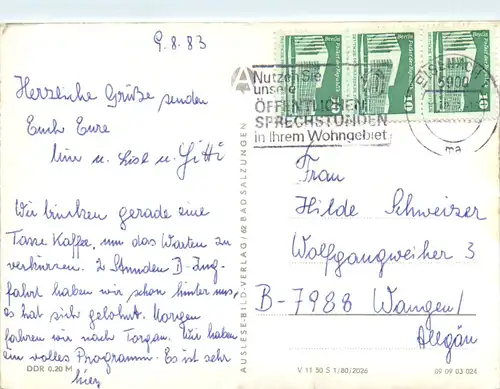 9.8.83
Herzliche Grüße senden
Euch Eure
u. Lisl u. Gitti
Wir trinken gerade eine
Tasse Kaffee, um das Warten zu
verkürzen. 2 Stunden D-Zug-
fahrt haben wir schon hinter uns,
es hat sich gelohnt. Morgen
fahren wir nach Torgau. Wir haben
ein volles Programm. Es ist sehr
DDR 0,20 M
AUSLESE-BILD-VERLAG / 62 BAD SALZUNGEN
Nutzen Sie
unsere
ÖFFENTLICHEN
SPRECHSTUNDEN
in Ihrem Wohngebiet
5900
ma
10
10
Frau
Hilde Schweizer
Wolfgangweiher 3
B-7988 Wangen/
Allgäu
V 11 50 S 1/80/2026
09 09 03 024